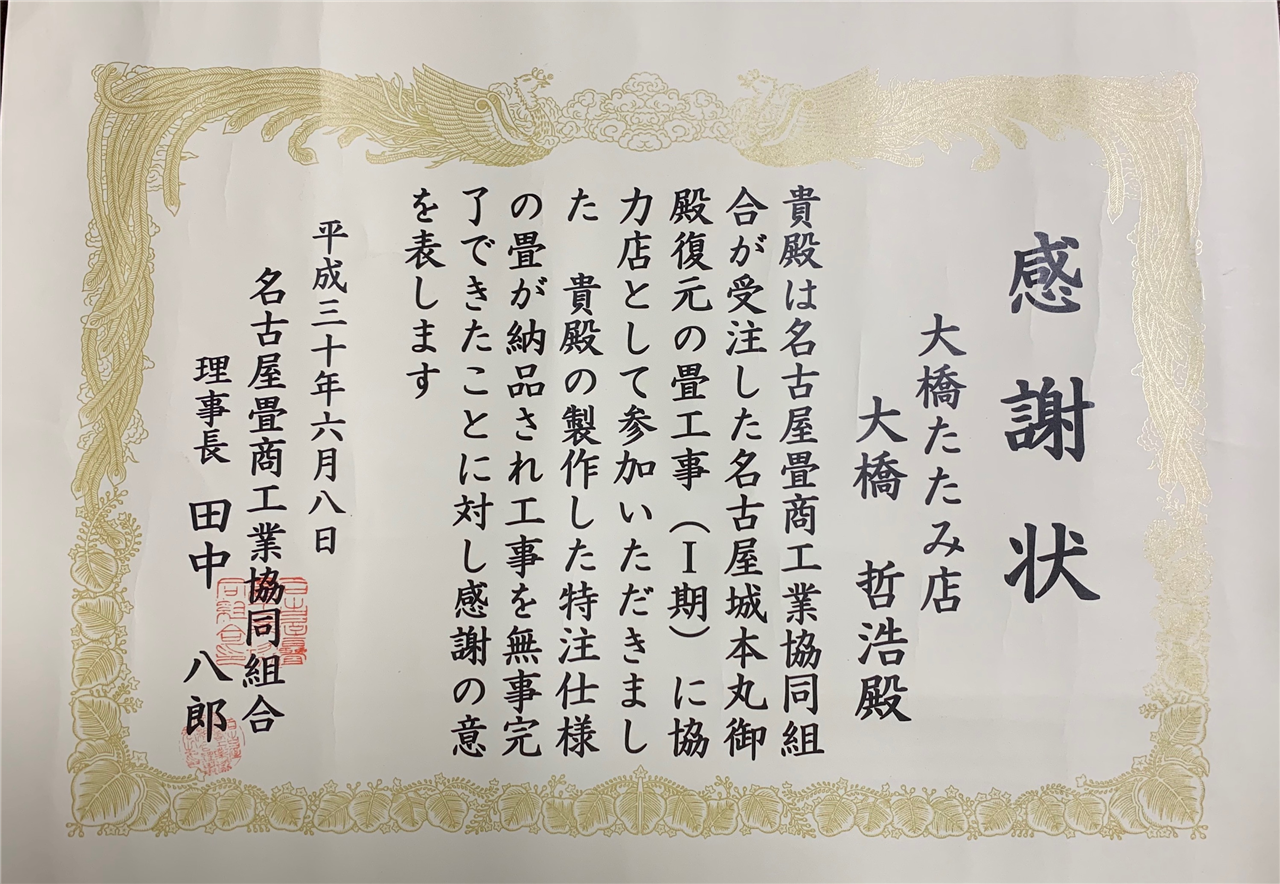 感謝状
大橋たたみ店
大橋 哲浩殿
貴殿は名古屋畳商工業協同組
合が受注した名古屋城本丸御
殿復元の畳工事（Ⅰ期）に協
力店として参加いただきまし
た 貴殿の製作した特注仕様
の畳が納品され工事を無事完
了できたことに対し感謝の意
を表します
平成三十年六月八日
名古屋畳商工業協同組合
理事長 田中 八郎